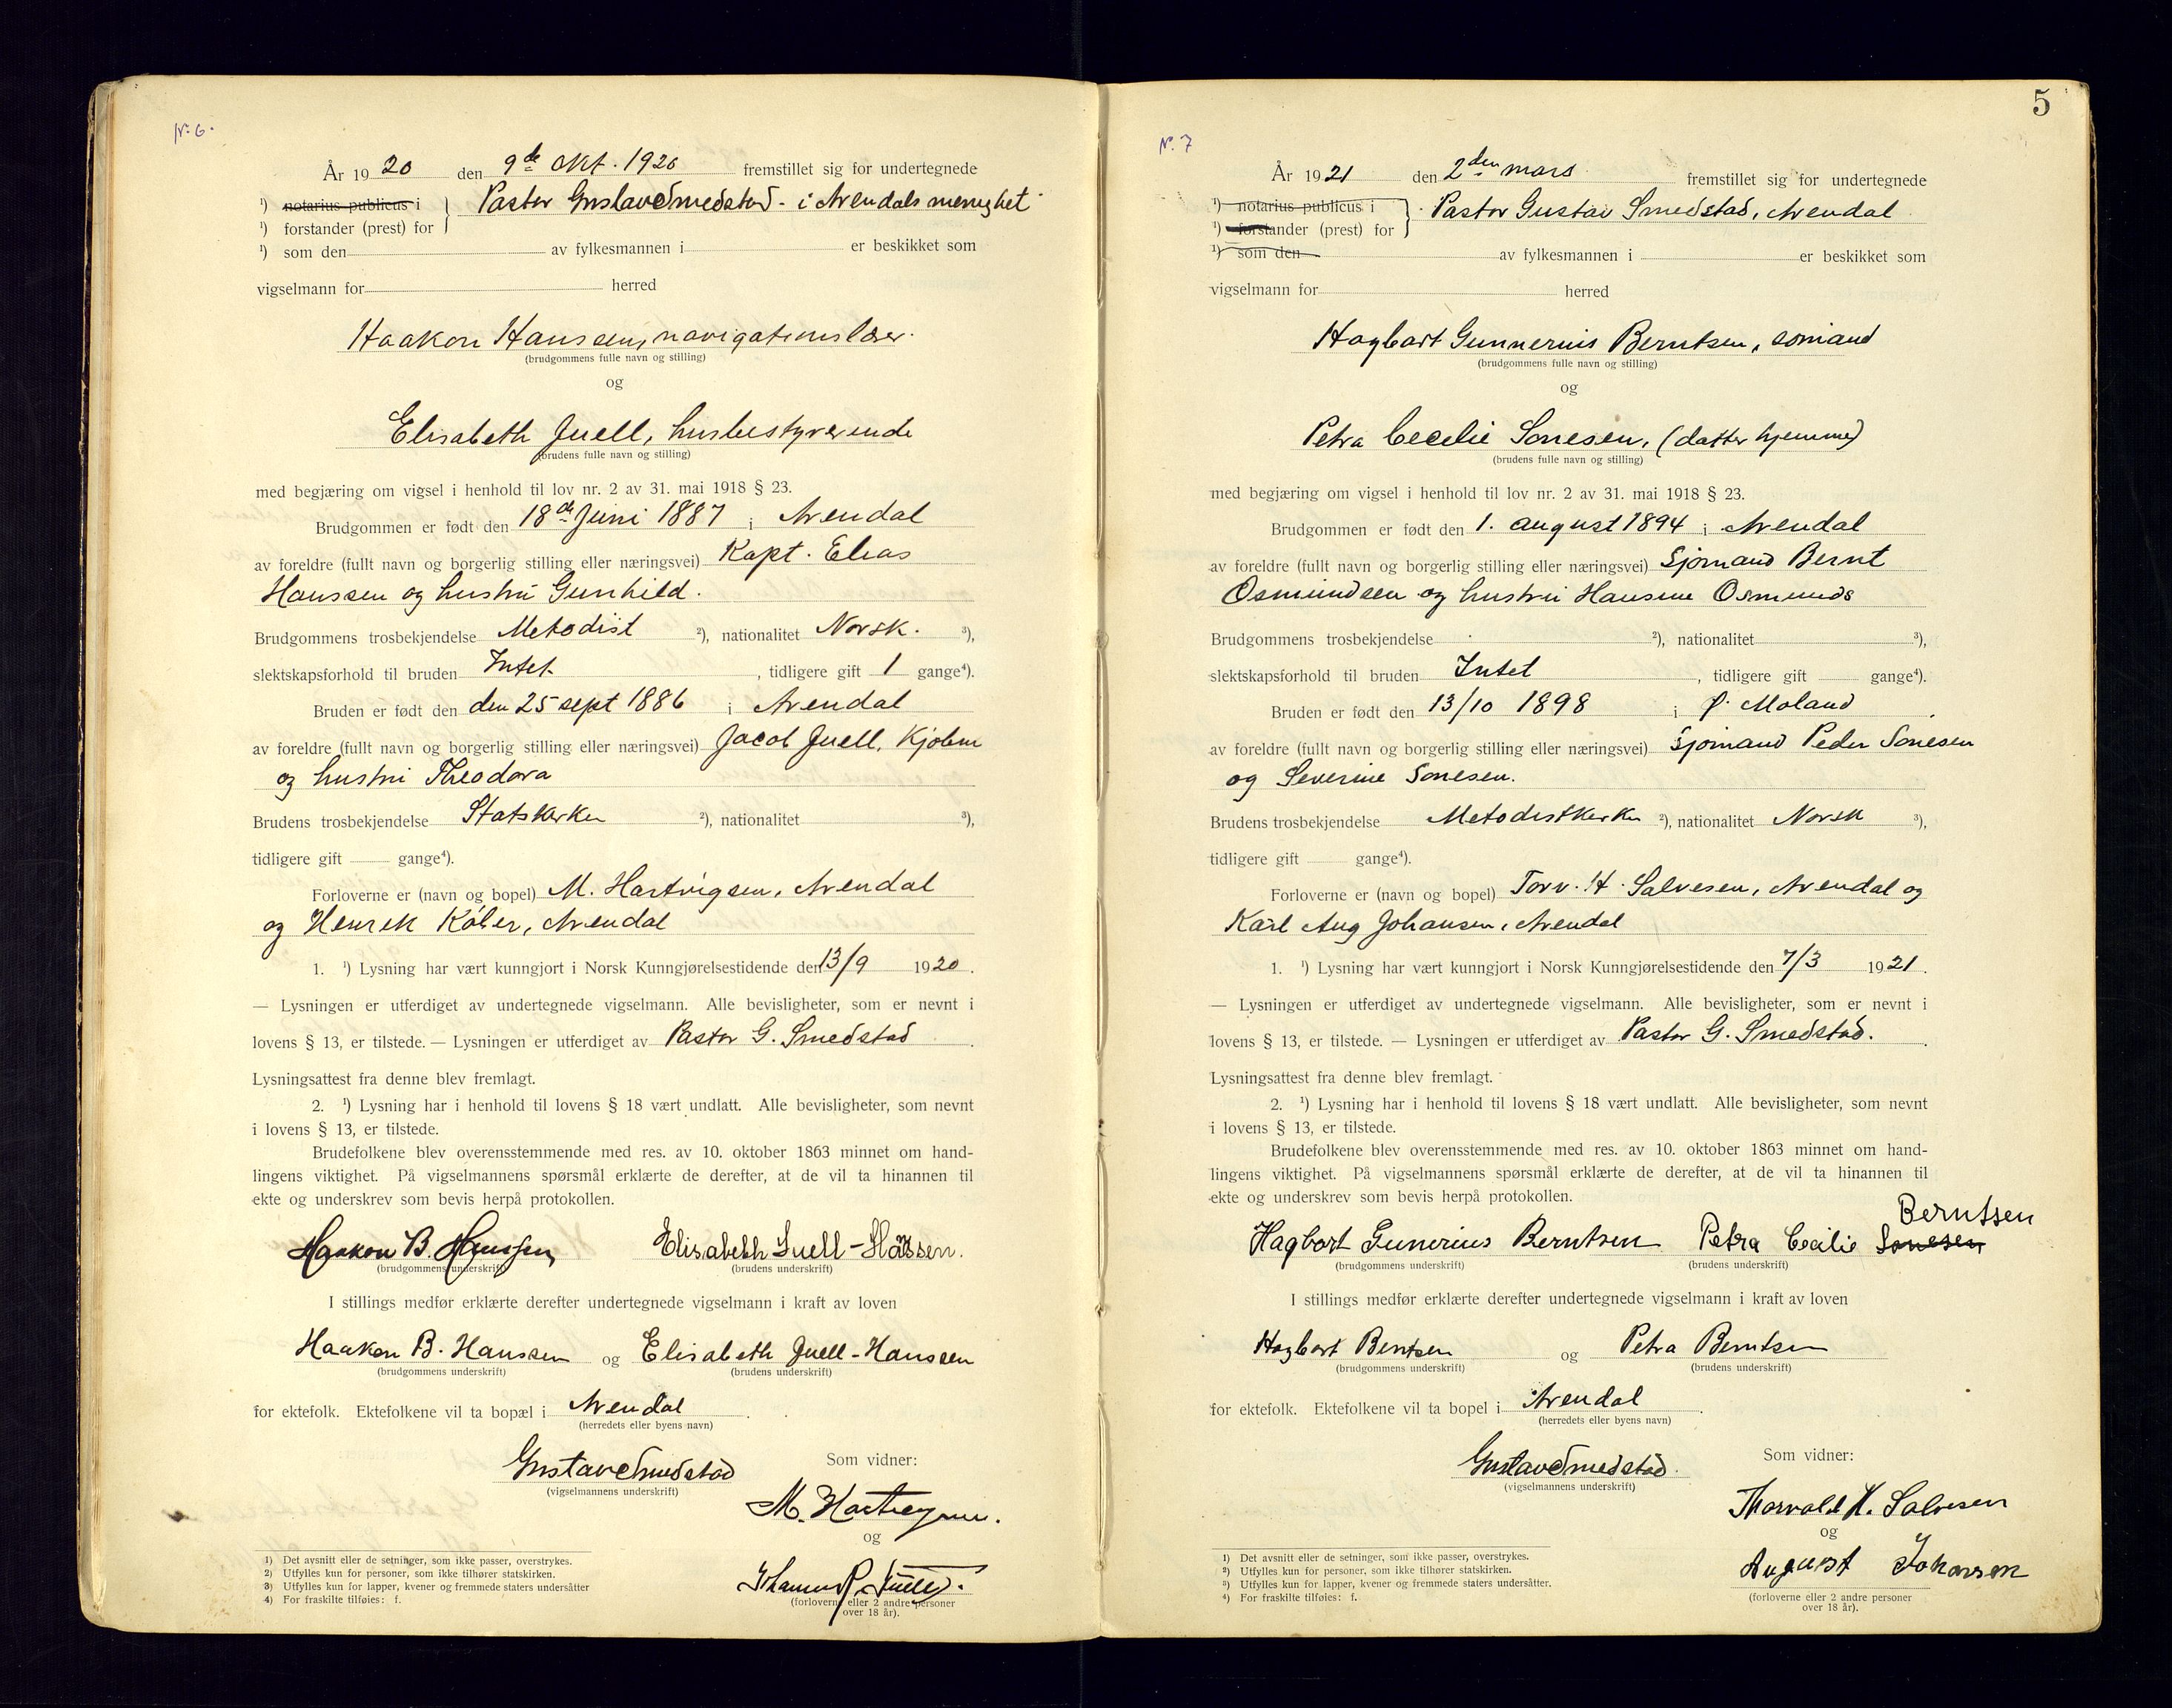 Nr. 6.
År 1920 den 9de Okt. 1920 fremstillet sig for undertegnede
¹) notarius publicus i
Pastor Gustav Smedstad - i Arendals menighet
¹) forstander (prest) for
¹) som den av fylkesmannen i er beskikket som
vigselmann for herred
Haakon Hanssen, navigationslærer.
(brudgommens fulle navn og stilling)
og
Elisabeth Juell, husbestyrerende
(brudens fulle navn og stilling)
med begjæring om vigsel i henhold til lov nr. 2 av 31. mai 1918 § 23.
Brudgommen er født den 18de Juni 1887 i Arendal
av foreldre (fullt navn og borgerlig stilling eller næringsvei) Kapt. Elias
Hanssen og hustru Gunhild.
Brudgommens trosbekjendelse Metodist ²), nationalitet Norsk. ³),
slektskapsforhold til bruden Intet , tidligere gift 1 gange⁴).
Bruden er født den den 25 sept 1886 i Arendal
av foreldre (fullt navn og borgerlig stilling eller næringsvei) Jacob Juell,
og hustru Theodora
Brudens trosbekjendelse Statskirken ²), nationalitet ³),
tidligere gift gange⁴).
Forloverne er (navn og bopel) M. Hartvigsen, Arendal
og Henrik Køber, Arendal
1. ¹) Lysning har vært kunngjort i Norsk Kunngjørelsestidende den 13/9 1920.
— Lysningen er utferdiget av undertegnede vigselmann. Alle bevisligheter, som er nevnt i
lovens § 13, er tilstede. — Lysningen er utferdiget av Pastor G. Smedstad.
Lysningsattest fra denne blev fremlagt.
2. ¹) Lysning har i henhold til lovens § 18 vært undlatt. Alle bevisligheter, som nevnt
i lovens § 13, er tilstede.
Brudefolkene blev overensstemmende med res. av 10. oktober 1863 minnet om hand-
lingens viktighet. På vigselmannens spørsmål erklærte de derefter, at de vil ta hinannen til
ekte og underskrev som bevis herpå protokollen.
Haakon B. Hanssen Elisabeth Juell-Hanssen.
(brudgommens underskrift) (brudens underskrift)
I stillings medfør erklærte derefter undertegnede vigselmann i kraft av loven
Haakon B. Hanssen og Elisabeth Juell-Hanssen
(brudgommens underskrift) (brudens underskrift)
for ektefolk. Ektefolkene vil ta bopæl i Arendal.
(herredets eller byens navn)
Gustav Smedstad
(vigselmannens underskrift)
Som vidner:
M. Hartvigsen.
og
Juell.
(forloverne eller 2 andre personer
over 18 år).
1) Det avsnitt eller de setninger, som ikke passer, overstrykes.
2) Utfylles kun for personer, som ikke tilhører statskirken.
3) Utfylles kun for lapper, kvener og fremmede staters undersåtter
4) For fraskilte tilføies: f.
5
Nr. 7
År 1921 den 2den mars fremstillet sig for undertegnede
¹) notarius publicus i
Pastor Gustav Smedstad, Arendal
¹) forstander (prest) for
¹) som den av fylkesmannen i er beskikket som
vigselmann for herred
Hagbart Gunnerius Berntsen, sømand
(brudgommens fulle navn og stilling)
og
Petra Cecelie Sonesen, (datter hjemme)
(brudens fulle navn og stilling)
med begjæring om vigsel i henhold til lov nr. 2 av 31. mai 1918 § 23.
Brudgommen er født den 1. august 1894 i Arendal
av foreldre (fullt navn og borgerlig stilling eller næringsvei) Sjømand Bernt
Osmundsen og hustru Hansine Osmunds
Brudgommens trosbekjendelse ²), nationalitet ³),
slektskapsforhold til bruden Intet , tidligere gift gange⁴).
Bruden er født den 13/10 1898 i Ø. Moland
av foreldre (fullt navn og borgerlig stilling eller næringsvei) Sjømand Peder Sonesen
og Severine Sonesen.
Brudens trosbekjendelse Metodistkirken ²), nationalitet Norsk ³),
tidligere gift gange⁴).
Forloverne er (navn og bopel) Torv. H. Salvesen, Arendal og
Karl Aug Johansen, Arendal
1. ¹) Lysning har vært kunngjort i Norsk Kunngjørelsestidende den 7/3 1921.
— Lysningen er utferdiget av undertegnede vigselmann. Alle bevisligheter, som er nevnt i
lovens § 13, er tilstede. — Lysningen er utferdiget av Pastor G. Smedstad.
Lysningsattest fra denne blev fremlagt.
2. ¹) Lysning har i henhold til lovens § 18 vært undlatt. Alle bevisligheter, som nevnt
i lovens § 13, er tilstede.
Brudefolkene blev overensstemmende med res. av 10. oktober 1863 minnet om hand-
lingens viktighet. På vigselmannens spørsmål erklærte de derefter, at de vil ta hinannen til
ekte og underskrev som bevis herpå protokollen.
Berntsen
Hagbart Gunerius Berntsen Petra Cecilie Sonesen
(brudgommens underskrift) (brudens underskrift)
I stillings medfør erklærte derefter undertegnede vigselmann i kraft av loven
Hagbart Berntsen og Petra Berntsen
(brudgommens underskrift) (brudens underskrift)
for ektefolk. Ektefolkene vil ta bopel i Arendal.
(herredets eller byens navn)
Gustav Smedstad.
(vigselmannens underskrift)
Som vidner:
Thorvald H. Salvesen
og
August Johansen
(forloverne eller 2 andre personer
over 18 år).
1) Det avsnitt eller de setninger, som ikke passer, overstrykes.
2) Utfylles kun for personer, som ikke tilhører statskirken.
3) Utfylles kun for lapper, kvener og fremmede staters undersåtter.
4) For fraskilte tilføies: f.